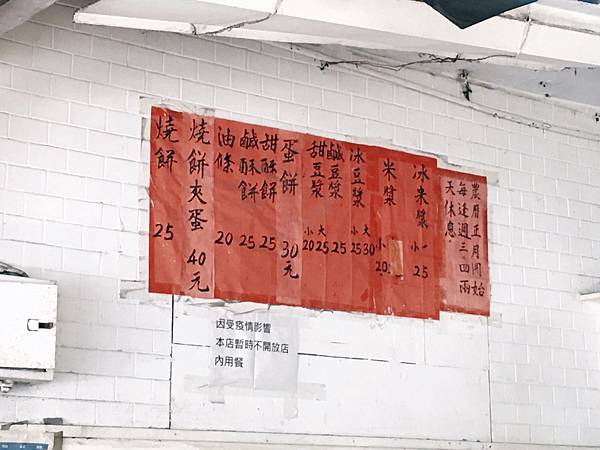 冰米漿 小 25
米漿 小 20
冰豆漿 大30 小25
鹹豆漿 25
甜豆漿 大25 小20
蛋餅 30元
甜酥餅 25
鹹酥餅 25
油條 20
燒餅夾蛋 40元
燒餅 25
農曆正月開始
每逢週三、四兩
天休息
因受疫情影響
本店暫時不開放店
內用餐